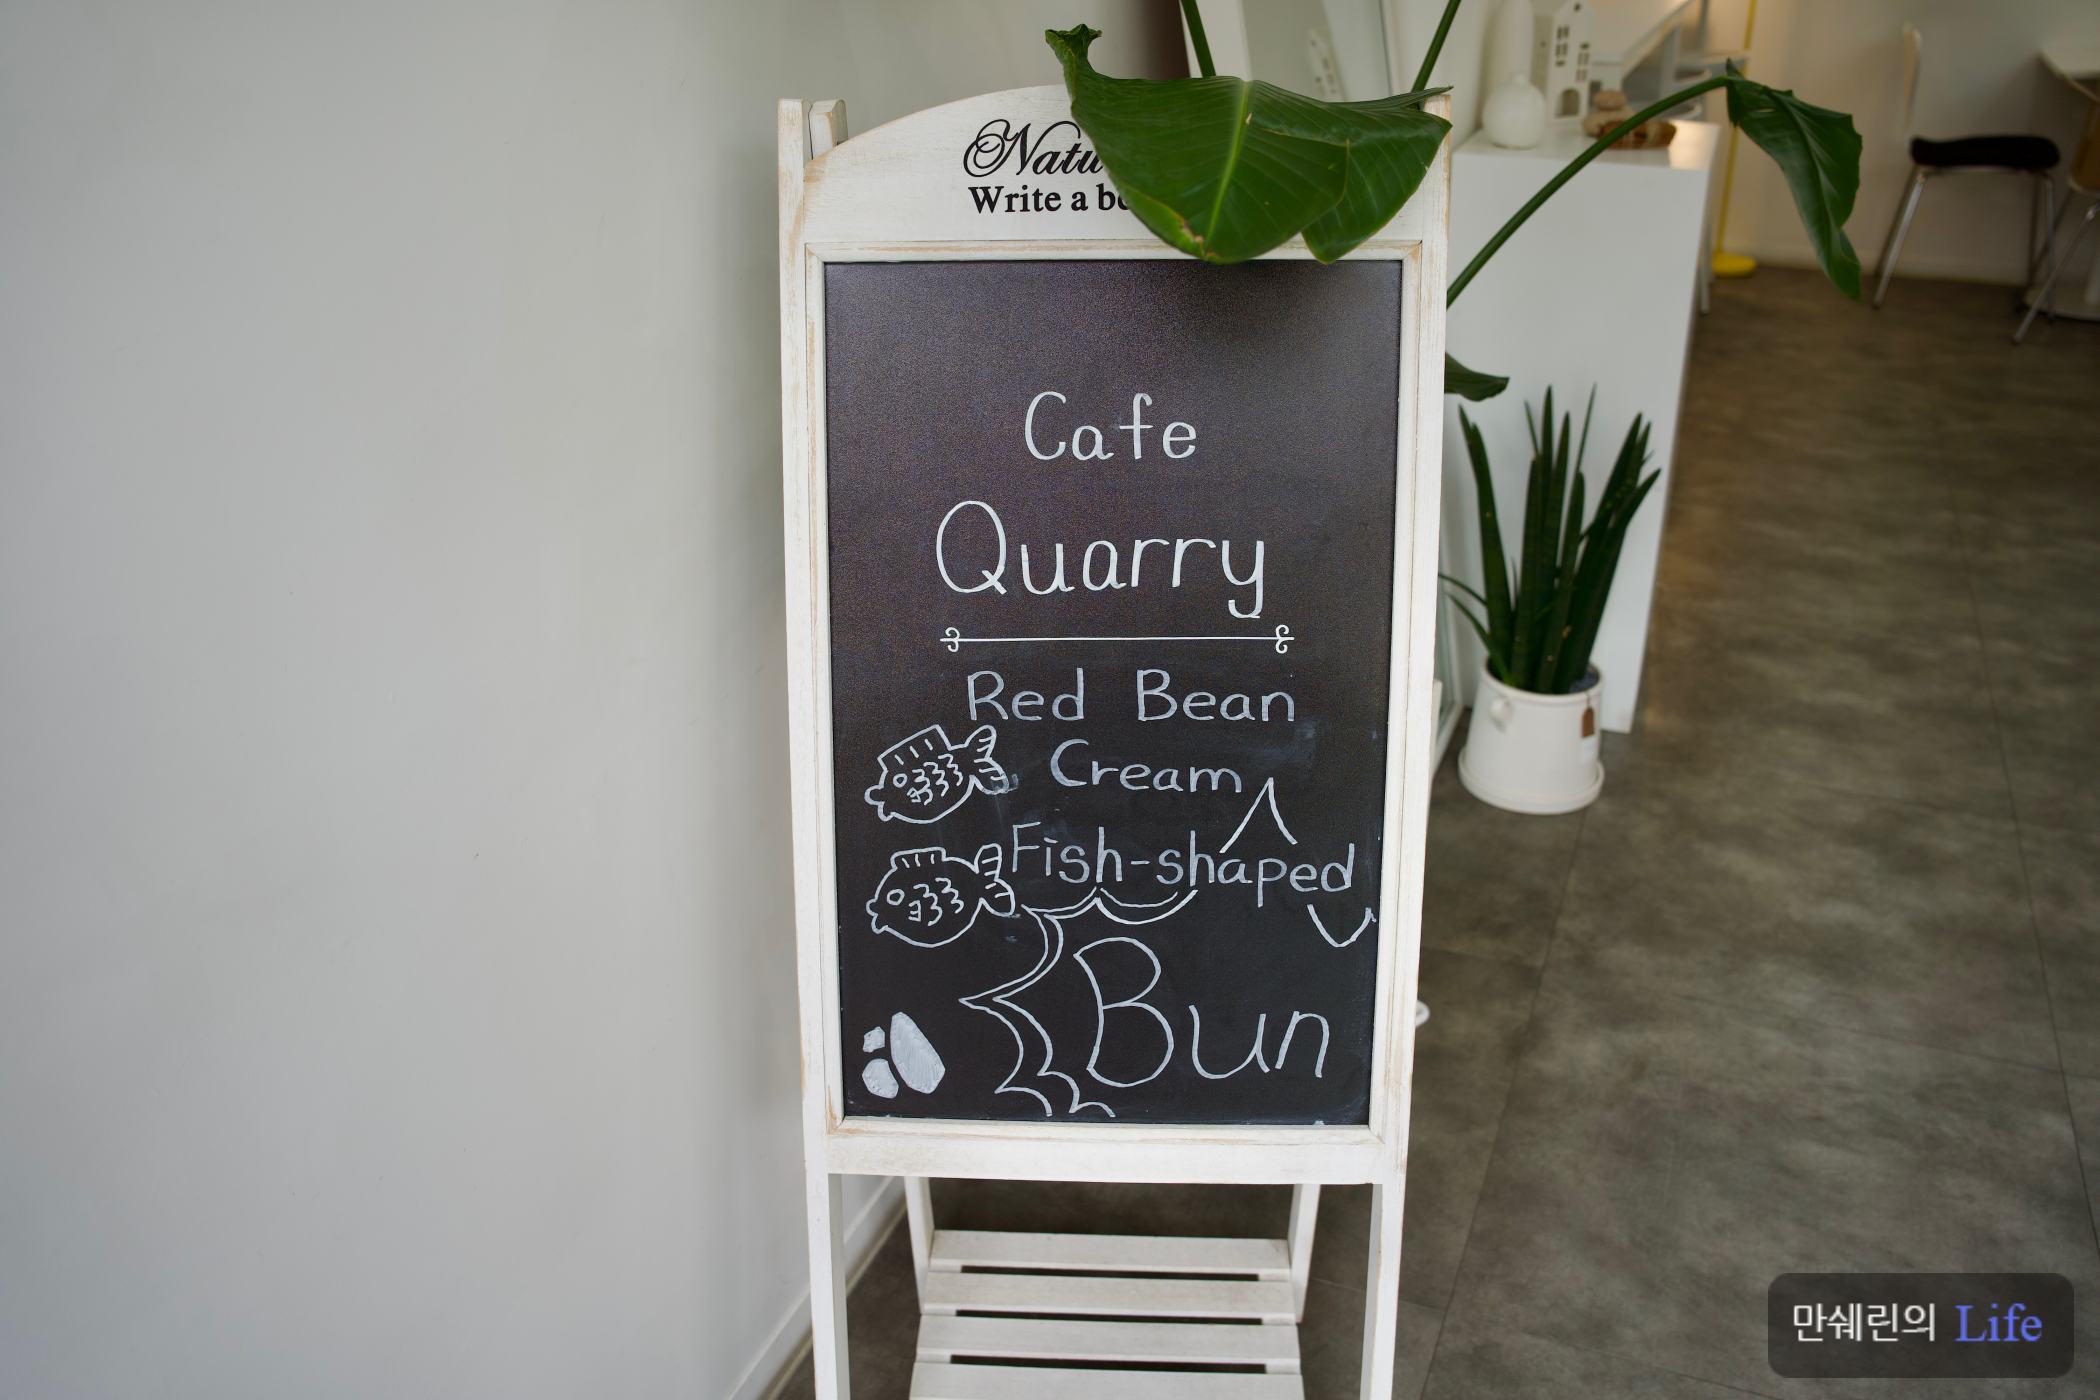 Write a
Cafe
Quarry
Red Bean
Cream
Fish-shaped
Bun
만쉐린의 Life